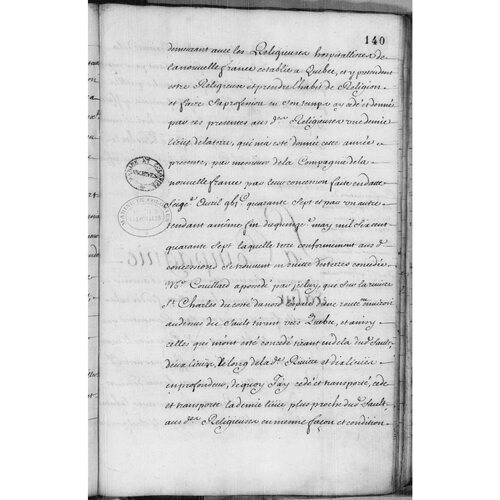 140
demeurant avec les Religieuses hospitalieres de
la nouvelle france establie a Quebec, et y pretendent
estre Religieuse et prendre l'habit de Religion
et faire sa profession en son temps ay cedé et donné
par ces presentes aux dtes Religieuses une demie
lieue de terre, qui ma esté donnée cette année
presente, par messieurs de la Compagnie de la
nouvelle france par leur concession faite en datte
Avril quarante Sept et par un autre
tendant a mesme fin du quinze may mil six cent
quarante Sept laquelle terre conformement aux d.
concessions se trouvent en suitte terres concedés
Couillard a posedé par que sur la riviere
St. Charles du costé du nord environ
au denus du Sault tirant vers Quebec, et
celles qui mont esté concedé tirant en dela du d. Sault
deux lieues, le long de la de. Riviere et
en profondeur, de quoy J'ay cedé et transporté, cede
et transporte la demie lieue plus proche du d. Sault,
aux dtes Religieuses en mesme façon et condition